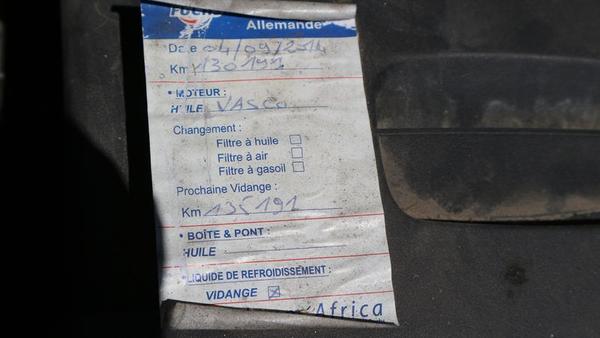 FUCHS
Allemande
Date 04/09/2014
Km 130191
• MOTEUR :
HUILE VASCO
Changement :
Filtre à huile
Filtre à air
Filtre à gasoil
Prochaine Vidange :
Km 135191
• BOÎTE & PONT :
HUILE
• LIQUIDE DE REFROIDISSEMENT :
VIDANGE
Africa